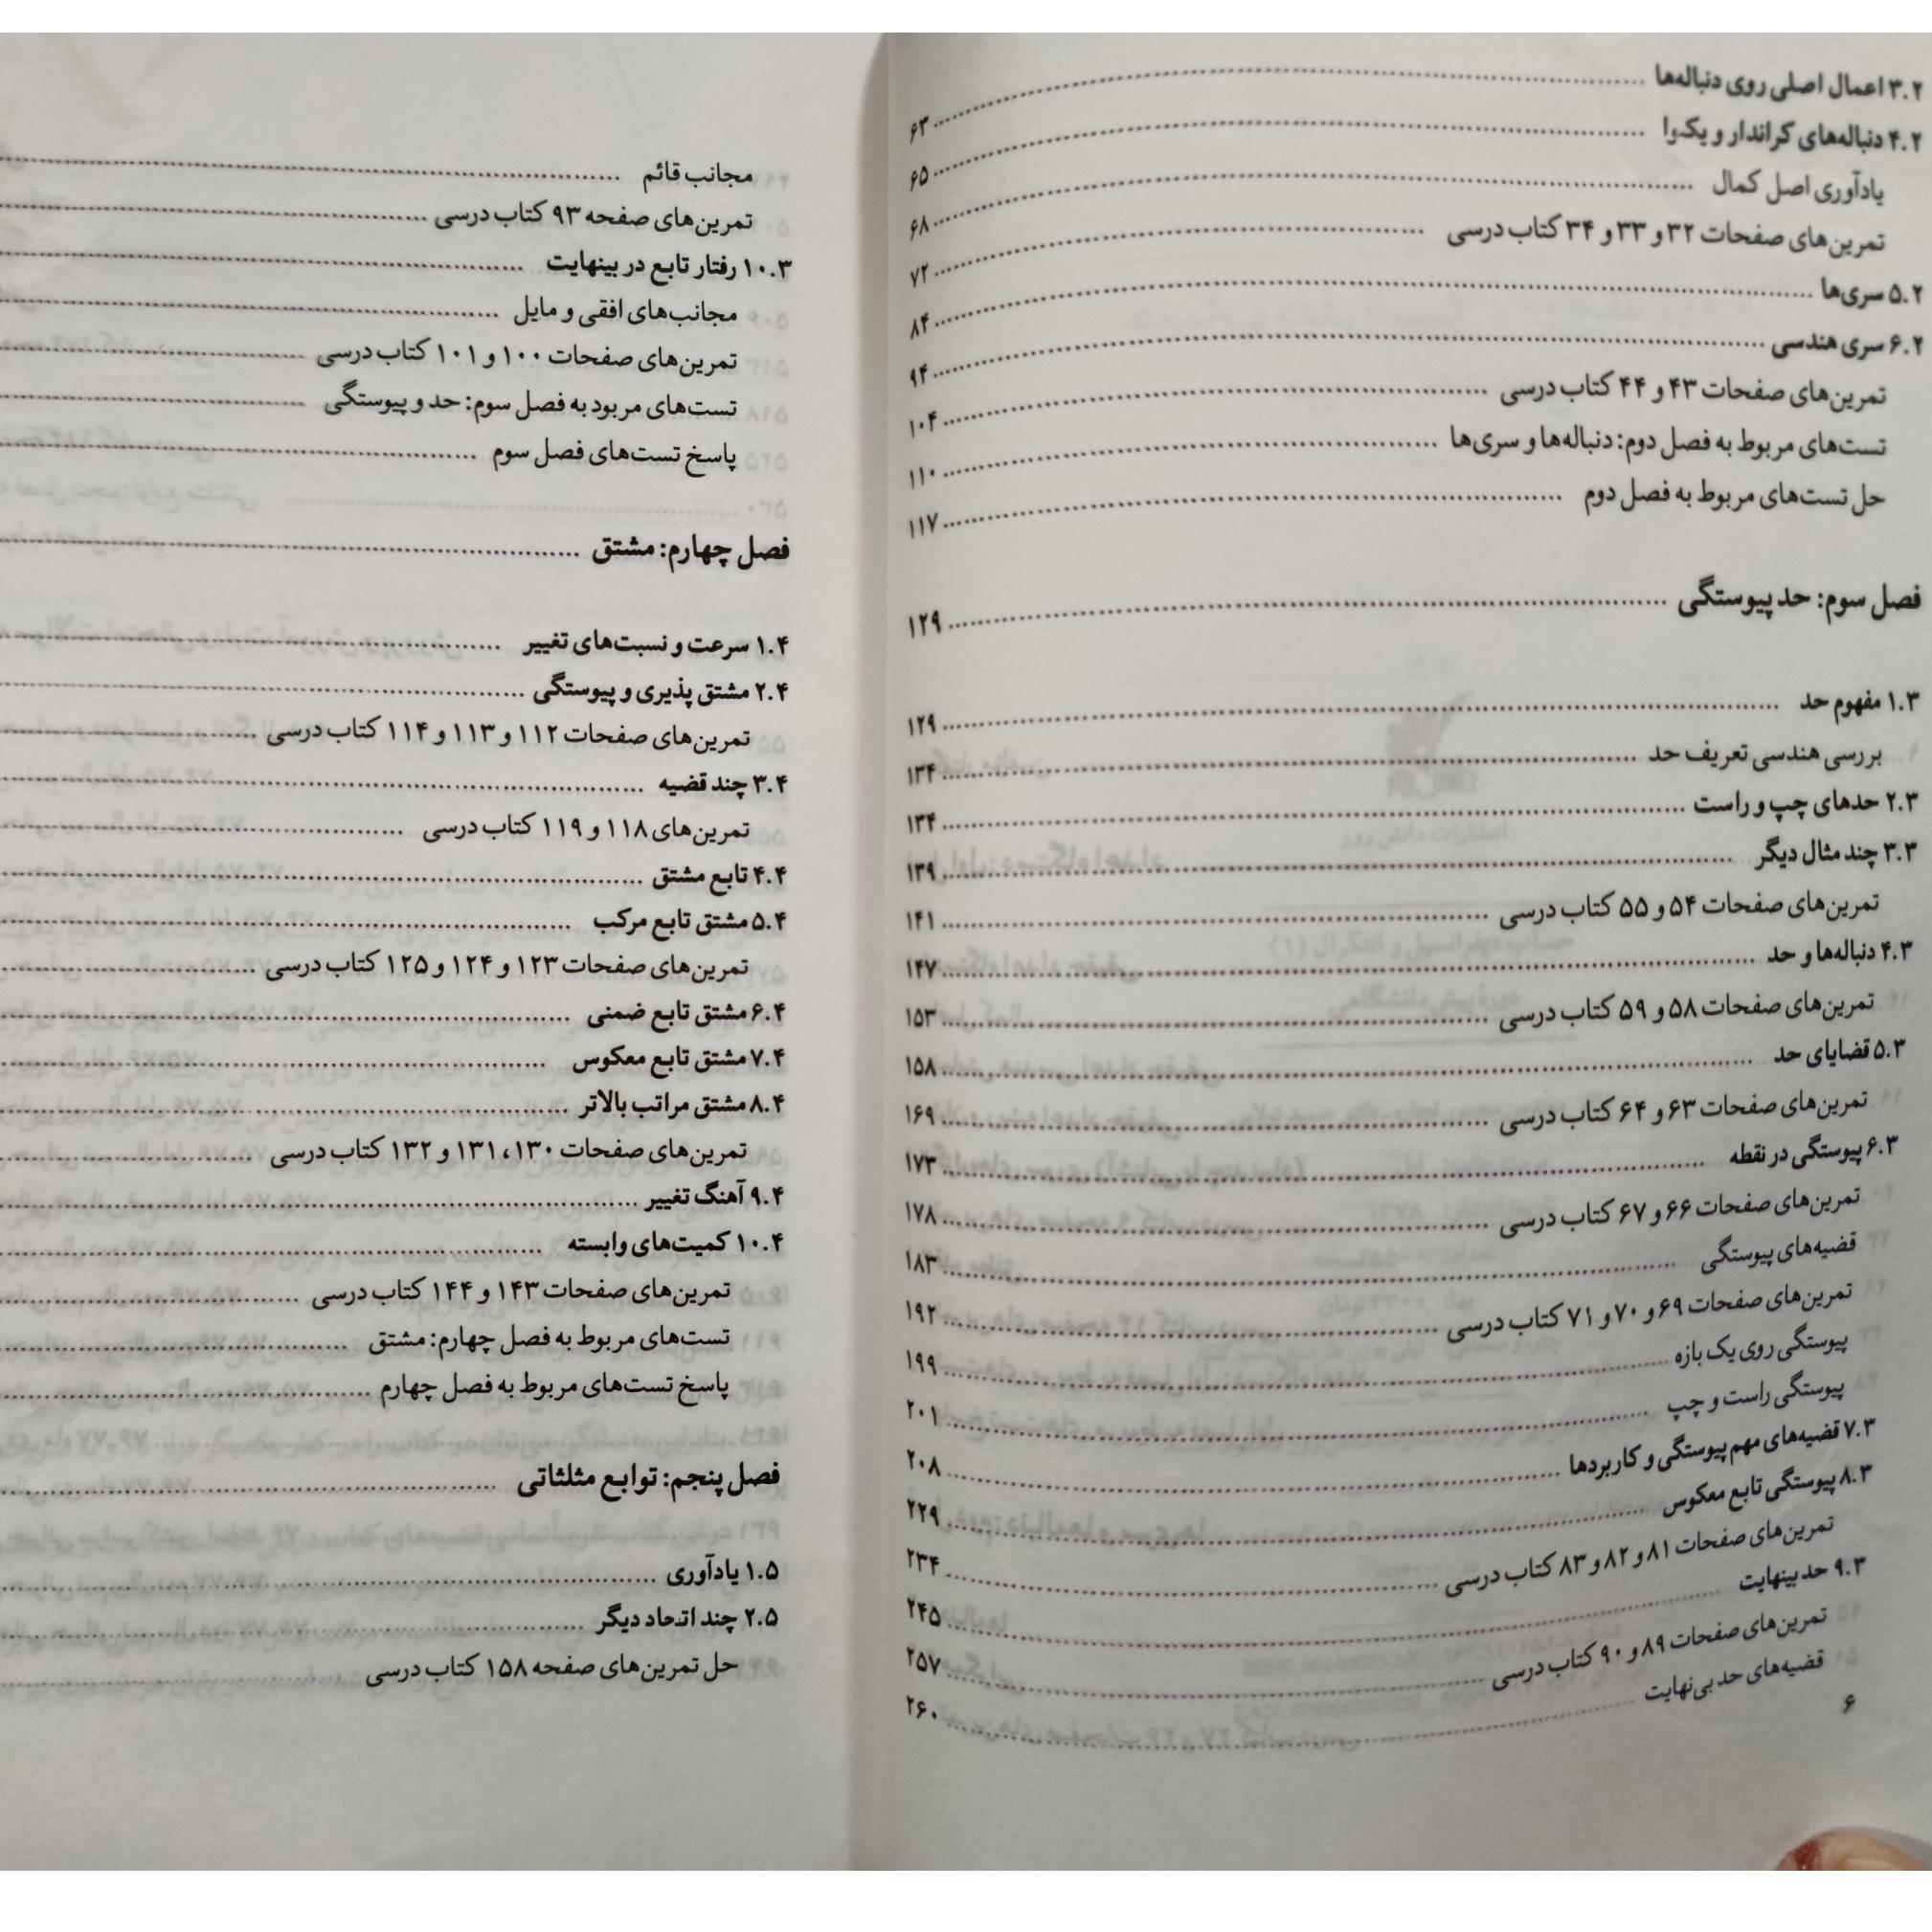 ۳.۲ اعمال اصلی روی دنباله‌ها ........ ۶۳
۴.۲ دنباله‌های کراندار و یکنوا ........ ۶۵
یادآوری اصل کمال ........ ۶۸
تمرین‌های صفحات ۳۲ و ۳۳ و ۳۴ کتاب درسی ........ ۷۲
۵.۲ سری‌ها ........ ۸۴
۶.۲ سری هندسی ........ ۹۴
تمرین‌های صفحات ۴۳ و ۴۴ کتاب درسی ........ ۱۰۴
تست‌های مربوط به فصل دوم: دنباله‌ها و سری‌ها ........ ۱۱۰
حل تست‌های مربوط به فصل دوم ........ ۱۱۷
فصل سوم: حد پیوستگی ........ ۱۲۹
۱.۳ مفهوم حد ........ ۱۲۹
بررسی هندسی تعریف حد ........ ۱۳۴
۲.۳ حدهای چپ و راست ........ ۱۳۴
۳.۳ چند مثال دیگر ........ ۱۳۹
تمرین‌های صفحات ۵۴ و ۵۵ کتاب درسی ........ ۱۴۱
۴.۳ دنباله‌ها و حد ........ ۱۴۷
تمرین‌های صفحات ۵۸ و ۵۹ کتاب درسی ........ ۱۵۳
۵.۳ قضایای حد ........ ۱۵۸
تمرین‌های صفحات ۶۳ و ۶۴ کتاب درسی ........ ۱۶۹
۶.۳ پیوستگی در نقطه ........ ۱۷۳
تمرین‌های صفحات ۶۶ و ۶۷ کتاب درسی ........ ۱۷۸
قضیه‌های پیوستگی ........ ۱۸۳
تمرین‌های صفحات ۶۹ و ۷۰ و ۷۱ کتاب درسی ........ ۱۹۲
پیوستگی روی یک بازه ........ ۱۹۹
پیوستگی راست و چپ ........ ۲۰۱
۷.۳ قضیه‌های مهم پیوستگی و کاربردها ........ ۲۰۸
۸.۳ پیوستگی تابع معکوس ........ ۲۲۹
تمرین‌های صفحات ۸۱ و ۸۲ و ۸۳ کتاب درسی ........ ۲۳۴
۹.۳ حد بینهایت ........ ۲۴۵
تمرین‌های صفحات ۸۹ و ۹۰ کتاب درسی ........ ۲۵۷
قضیه‌های حد بی‌نهایت ........ ۲۶۰
۶
مجانب قائم ........
تمرین‌های صفحه ۹۳ کتاب درسی ........
۱۰.۳ رفتار تابع در بینهایت ........
مجانب‌های افقی و مایل ........
تمرین‌های صفحات ۱۰۰ و ۱۰۱ کتاب درسی ........
تست‌های مربود به فصل سوم: حد و پیوستگی ........
پاسخ تست‌های فصل سوم ........
فصل چهارم: مشتق ........
۱.۴ سرعت و نسبت‌های تغییر ........
۲.۴ مشتق پذیری و پیوستگی ........
تمرین‌های صفحات ۱۱۲ و ۱۱۳ و ۱۱۴ کتاب درسی ........
۳.۴ چند قضیه ........
تمرین‌های ۱۱۸ و ۱۱۹ کتاب درسی ........
۴.۴ تابع مشتق ........
۵.۴ مشتق تابع مرکب ........
تمرین‌های صفحات ۱۲۳ و ۱۲۴ و ۱۲۵ کتاب درسی ........
۶.۴ مشتق تابع ضمنی ........
۷.۴ مشتق تابع معکوس ........
۸.۴ مشتق مراتب بالاتر ........
تمرین‌های صفحات ۱۳۰، ۱۳۱ و ۱۳۲ کتاب درسی ........
۹.۴ آهنگ تغییر ........
۱۰.۴ کمیت‌های وابسته ........
تمرین‌های صفحات ۱۴۳ و ۱۴۴ کتاب درسی ........
تست‌های مربوط به فصل چهارم: مشتق ........
پاسخ تست‌های مربوط به فصل چهارم ........
فصل پنجم: توابع مثلثاتی ........
۱.۵ یادآوری ........
۲.۵ چند اتحاد دیگر ........
حل تمرین‌های صفحه ۱۵۸ کتاب درسی ........